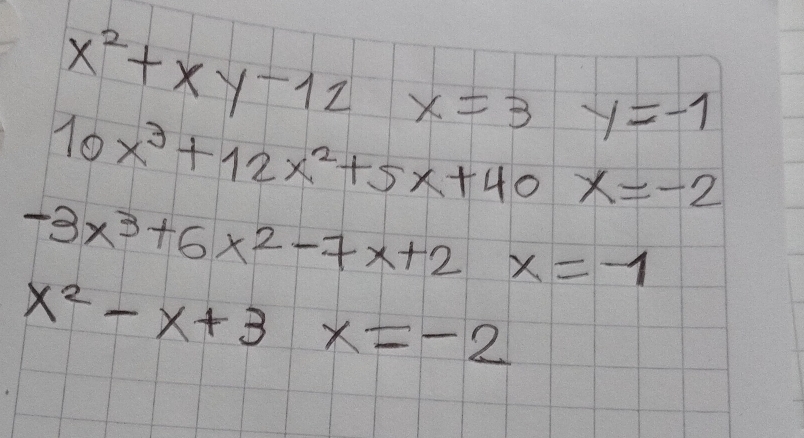 x² + xy - 12 x = 3 y = -1
10x³ + 12x² + 5x + 40 x = -2
-3x³ + 6x² - 7x + 2 x = -1
x² - x + 3 x = -2